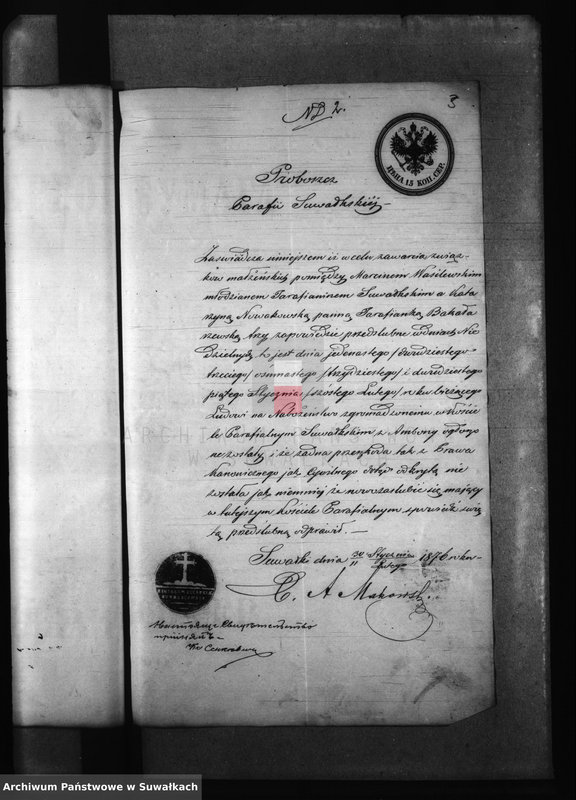 ND 2.
3
ЦѢНА 15 КОП. СЕР.
Proboszcz
Parafii Suwałkskiéj
Zaświadcza niniejszem iż w celu zawarcia związ-
ków małżeńskich pomiędzy Marcinem Wasilewskim
młodzianem Parafianinem Suwałkskim a Kata
rzyną Nowakowską panną Parafianką Bakała
rzewską trzy zapowiedzie przedślubne w dniach Nie
dzielnych to jest dnia jedenastego /dwudziestego
trzeciego/ osmnastego /trzydziestego/ i dwudziestego
piątego Stycznia /szóstego Lutego/ roku bieżącego
Ludowi na Nabożeństwo zgromadzonemu w Koście
le Parafialnym Suwałkskim z Ambony ogłoszo
ne zostały i że żadna przeszkoda tak z Prawa
Kanonicznego jak Cywilnego dotąd odkrytą nie
została jak niemniej że nowozaślubić się mający
w tutejszym Kościele Parafialnym spowiedź świę
tą przedślubną odprawił.
Suwałki dnia Stycznia 1876 roku
Lutego
X. A Makowski